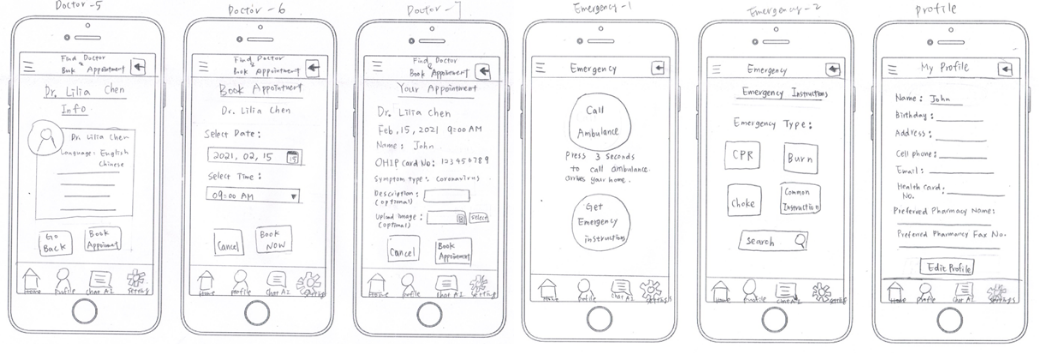 Doctor-5
Find Doctor
&
Book Appointment
Dr. Lilia Chen
Info
Dr. Lilia Chen
Language: English
Chinese
Go Back
Book Appointment
Home
Profile
Chat AZ
Settings
Doctor-6
Find Doctor
&
Book Appointment
Book Appointment
Dr. Lilia Chen
Select Date:
2021. 02. 15
Select Time:
09:00 AM
Cancel
Book NOW
Home
Profile
Chat AZ
Settings
Doctor-7
Find Doctor
&
Book Appointment
Your Appointment
Dr. Lilia Chen
Feb. 15, 2021 9:00 AM
Name: John
OHIP Card No: 123456789
Symptom type: Coronavirus
Description:
(optional)
Upload Image:
Select
(optional)
Cancel
Book Appointment
Home
Profile
Chat AZ
Settings
Emergency-1
Emergency
Call
Ambulance
Press 3 Seconds
to call ambulance
arrives your home.
Get
Emergency
instruction
Profile
Chat AZ
Settings
Emergency-2
Emergency
Emergency Instructions
Emergency Type:
CPR
Burn
Choke
Common
Instruction
Search
Home
Profile
Chat AZ
Settings
Profile
My Profile
Name: John
Birthday:
Address:
Cell phone:
Email:
Health Card
No.
Preferred Pharmacy Name:
Preferred Pharmacy Fax No.
Edit Profile
Home
Profile
Chat AZ
Settings